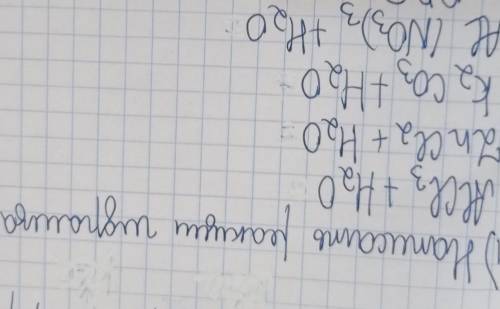 1) Написать реакции гидролиза
AlCl3 + H2O
ZnCl2 + H2O =
K2CO3 + H2O
Al(NO3)3 + H2O